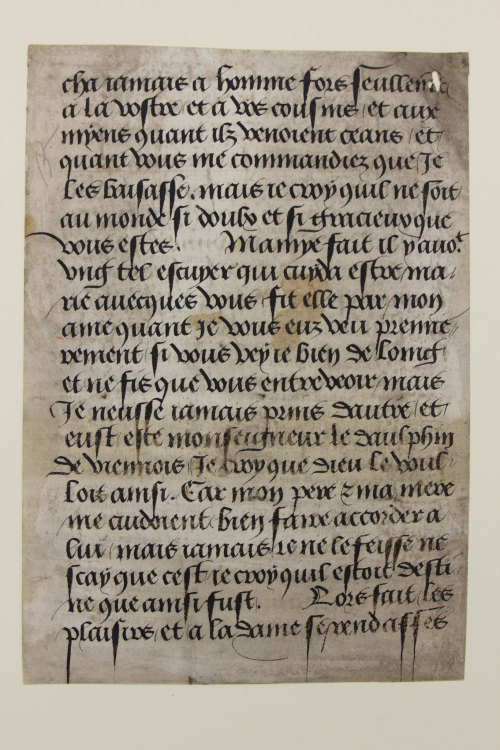 cha iamais a homme fors seullement
a la vostre et a vos cousins / et aux
myens quant ilz venoient ceans / et
quant vous me commandiez que Je
les baisasse. mais ie croy quil ne soit
au monde si doulx et si gracieux que
vous estes. Mamye fait il y auoit
vng tel escuyer qui cuyda estre ma-
rie auecques vous / fit elle par mon
ame quant Je vous euz veu premie-
rement / si vous vey ie bien de loing
et ne fis que vous entreveoir / mais
Je neusse iamais prins dautre / et
eust este monseigneur le daulphin
de viennois / Je croy que dieu le voul-
loit ainsi. Car mon pere z ma mere
me cuidoient bien faire accorder a
lui / mais iamais ie ne le feisse ne
scay que cest ie croy quil estoit desti-
ne que ainsi fust. Lors fait les
plaisirs / et a la dame se rend asses